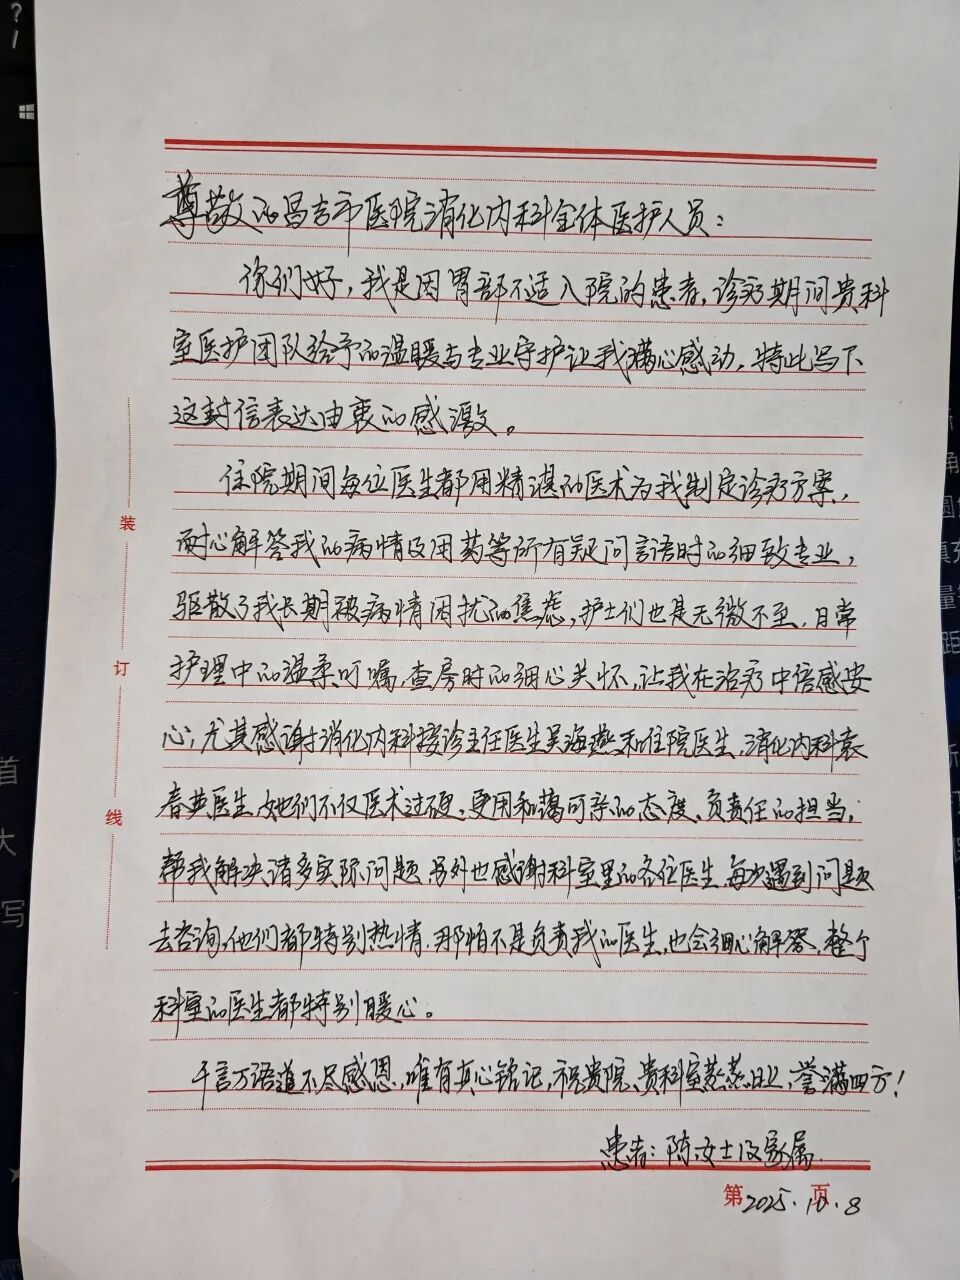 尊敬的昌吉市医院消化内科全体医护人员：
你们好，我是因胃部不适入院的患者，诊疗期间贵科
室医护团队给予的温暖与专业守护让我满心感动，特此写下
这封信表达由衷的感激。
住院期间每位医生都用精湛的医术为我制定诊疗方案，
耐心解答我的病情及用药等所有疑问言语时的细致专业，
驱散了我长期被病情困扰的焦虑，护士们也是无微不至，日常
护理中的温柔叮嘱，查房时的细心关怀，让我在治疗中倍感安
心；尤其感谢消化内科接诊主任医生吴海燕和住院医生，消化内科袁
春英医生，她们不仅医术过硬，更用和蔼可亲的态度、负责任的担当，
帮我解决诸多实际问题，另外也感谢科室里的各位医生，每次遇到问题
去咨询，他们都特别热情，那怕不是负责我的医生，也会细心解答，整个
科室的医生都特别暖心。
千言万语道不尽感恩，唯有真心铭记，祝贵院、贵科室蒸蒸日上，誉满四方！
患者：陈女士及家属
第 页
2025.10.8
装
订
线